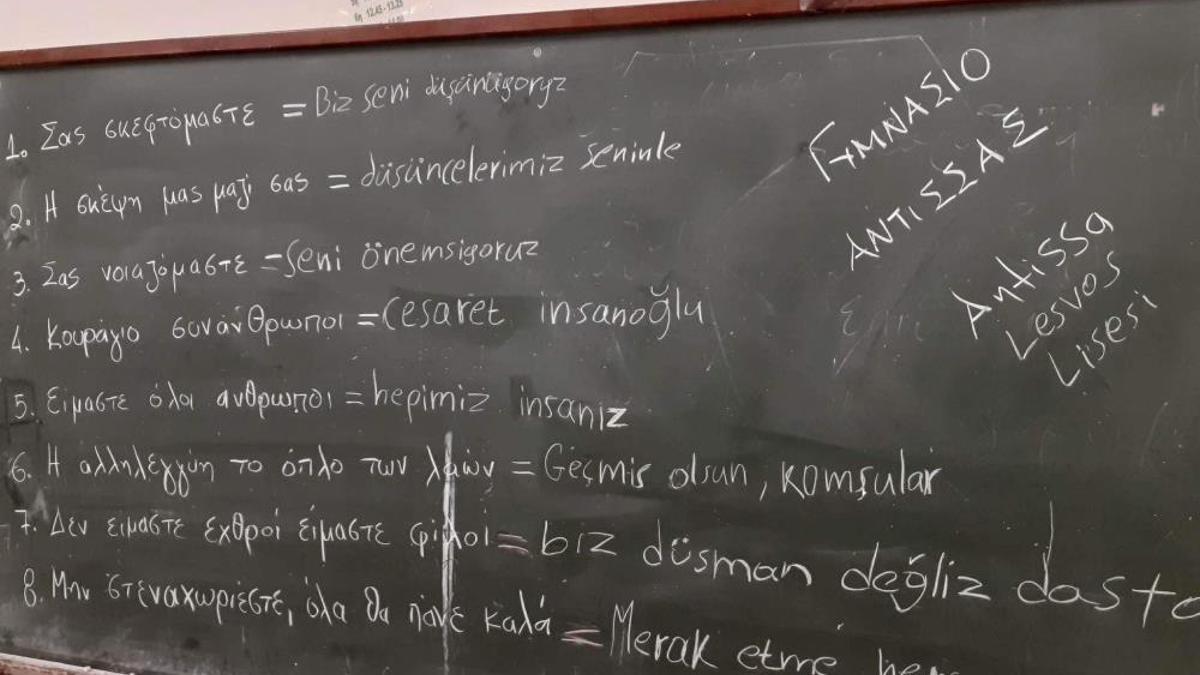 8η 12.45 - 13.25
1. Σας σκεφτόμαστε = Biz seni düşünügoryz
2. Η σκέψη μας μαζί σας = düşüncelerimiz seninle
3. Σας νοιαζόμαστε = seni önemsigoruz
4. Κουράγιο συνάνθρωποι = Cesaret insanoğlu
5. Ειμαστε όλοι ανθρωποι = hepimiz insaniz
6. Η αλληλεγγύη το όπλο των λαών = Geçmis olsun, komşular
7. Δεν ειμαστε εχθροί είμαστε φίλοι = biz düsman değliz dasto
8. Μην στεναχωριέστε, όλα θα πάνε καλά = Merak etme her
ΓΥΜΝΑΣΙΟ
ΑΝΤΙΣΣΑΣ
Antissa
Lesvos
Lisesi